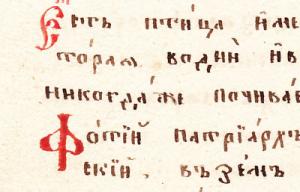 Есть птица име
торая водни нв
никогдаже почивае
Фотїй патрїархъ
скїй. въземъ